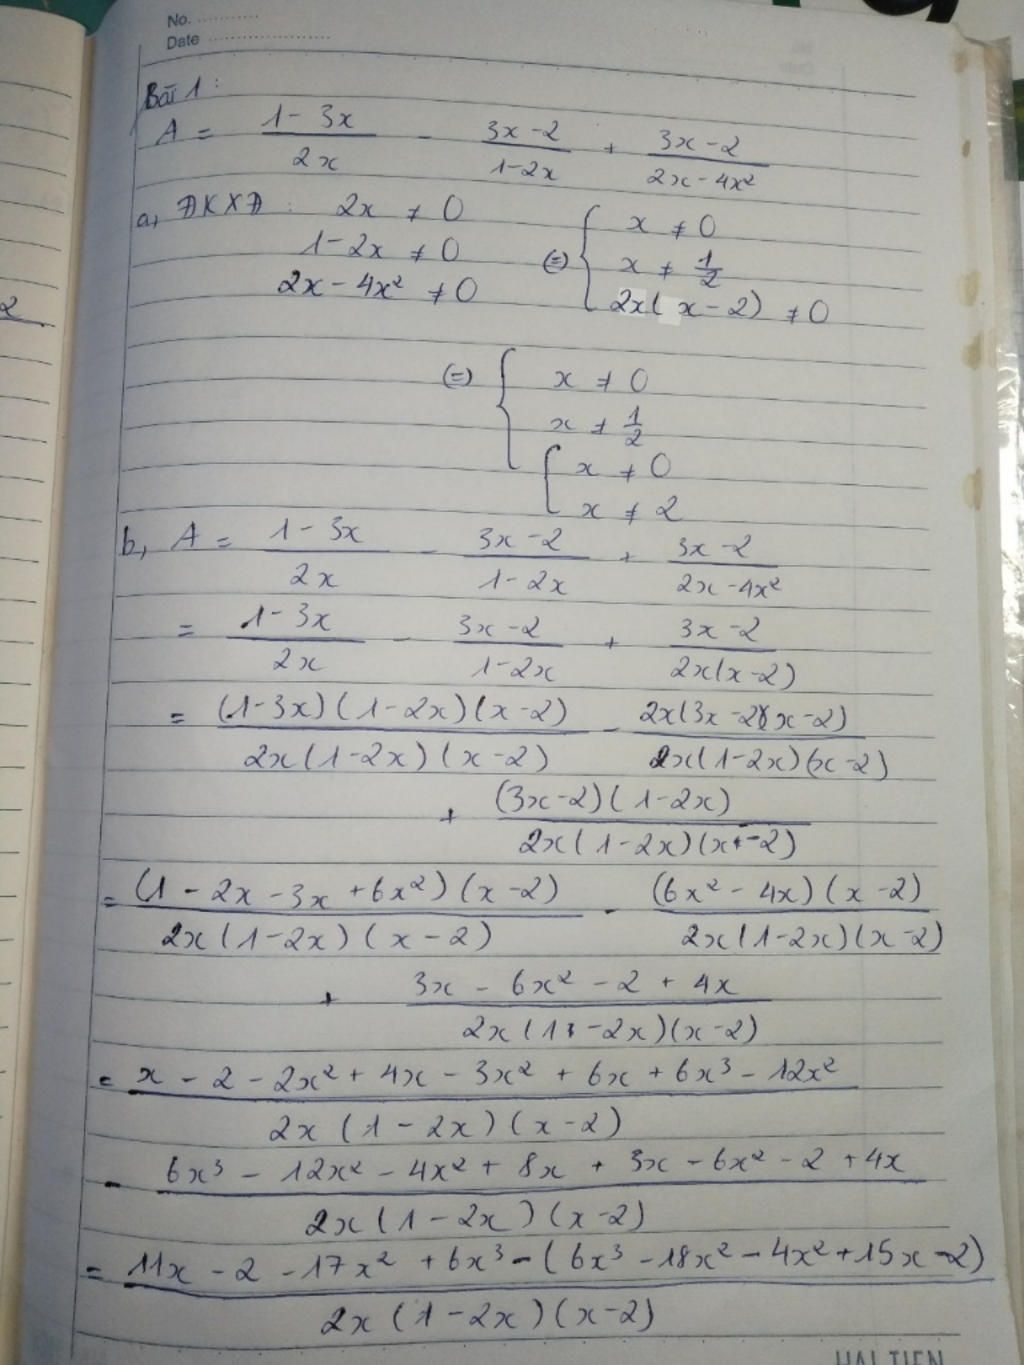 No. ............
Date ........................
Bài 1 :
A = (1 - 3x)/(2x) - (3x - 2)/(1 - 2x) + (3x - 2)/(2x - 4x²)
a, ĐKXĐ : 2x ≠ 0
1 - 2x ≠ 0
2x - 4x² ≠ 0
(=) { x ≠ 0
x ≠ 1/2
2x( x - 2) ≠ 0
(=) { x ≠ 0
x ≠ 1/2
{ x ≠ 0
x ≠ 2
b, A = (1 - 3x)/(2x) - (3x - 2)/(1 - 2x) + (3x - 2)/(2x - 4x²)
= (1 - 3x)/(2x) - (3x - 2)/(1 - 2x) + (3x - 2)/(2x(x - 2))
= (1 - 3x)(1 - 2x)(x - 2)/(2x(1 - 2x)(x - 2)) - 2x(3x - 2)(x - 2)/(2x(1 - 2x)(x - 2))
+ (3x - 2)(1 - 2x)/(2x(1 - 2x)(x - 2))
= (1 - 2x - 3x + 6x²)(x - 2)/(2x(1 - 2x)(x - 2)) - (6x² - 4x)(x - 2)/(2x(1 - 2x)(x - 2))
+ (3x - 6x² - 2 + 4x)/(2x(1 - 2x)(x - 2))
= (x - 2 - 2x² + 4x - 3x² + 6x + 6x³ - 12x²)/(2x(1 - 2x)(x - 2))
- (6x³ - 12x² - 4x² + 8x + 3x - 6x² - 2 + 4x)/(2x(1 - 2x)(x - 2))
= (11x - 2 - 17x² + 6x³ - (6x³ - 18x² - 4x² + 15x - 2))/(2x(1 - 2x)(x - 2))
HAI TIEN